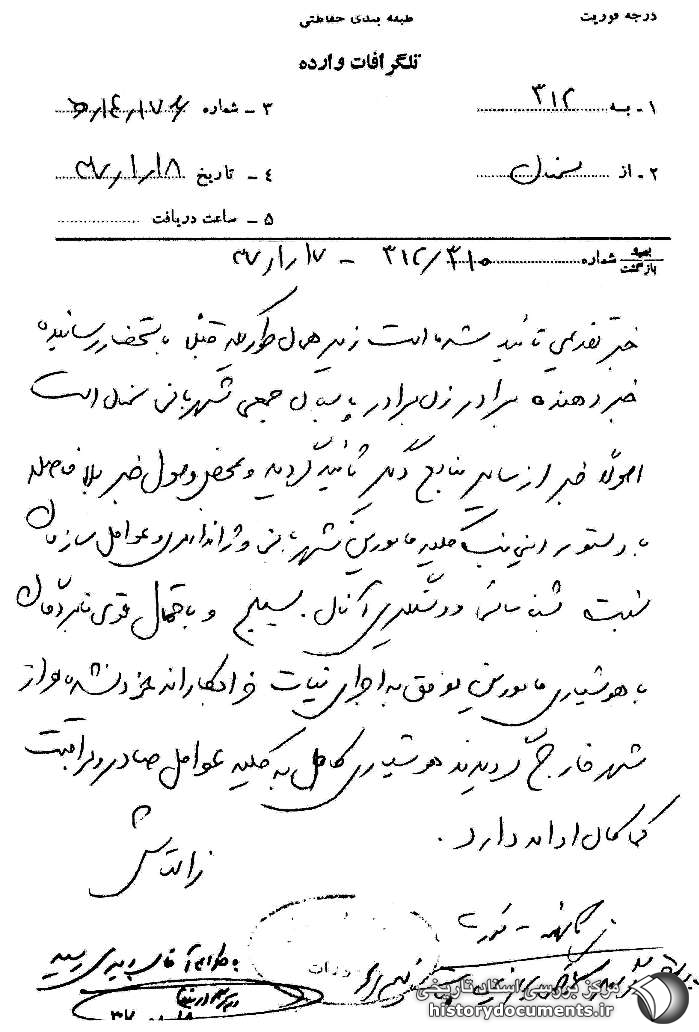 درجه فوریت
طبقه بندی حفاظتی
تلگرافات وارده
۱ـ به ۳۱۲
۳ ـ شماره
۲ـ از سمنان
٤ ـ تاریخ ۳۷/۱/۱۸
۵ ـ ساعت دریافت
بازگشت شماره ۳۱۲/۳۱۰ - ۳۷/۱/۱۷
خبر تقدیمی تائید شده است زیرا همان طوریکه قبلاً باستحضار رسانیده
خبر دهنده برادر زن برادر پاسبان جمعی شهربانی سمنان است
اصولاً خبر از سایر منابع دیگر تائید گردید و بمحض وصول خبر بلافاصله
با دستور اینجانب کلیه مامورین شهربانی و ژاندارمری و عوامل سازمان
نسبت بشناسائی و دستگیری آنان بسیج و باحتمال قوی نامبردگان
با هوشیاری مامورین موفق به اجرای نیات خرابکارانه خود نشده و از
شهر خارج گردیدند هوشیاری کامل به کلیه عوامل صادر و مراقبت
کماکان ادامه دارد.
مرکز بررسی اسناد تاریخی
historydocuments.ir